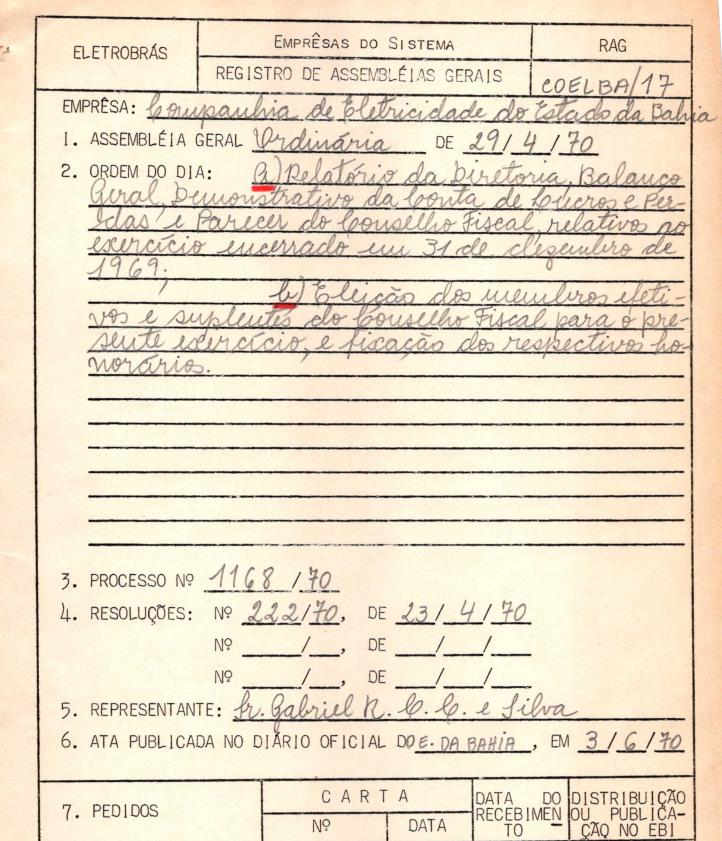 ELETROBRÁS
EMPRÊSAS DO SISTEMA
RAG
REGISTRO DE ASSEMBLÉIAS GERAIS
COELBA/17
EMPRÊSA: Companhia de Eletricidade do Estado da Bahia
1. ASSEMBLÉIA GERAL Ordinária DE 29/4/70
2. ORDEM DO DIA: a) Relatório da Diretoria, Balanço
Geral, Demonstrativo da Conta de Lucros e Per-
das e Parecer do Conselho Fiscal, relativos ao
exercício encerrado em 31 de dezembro de
1969;
b) Eleição dos membros efeti-
vos e suplentes do Conselho Fiscal para o pre-
sente exercício, e fixação dos respectivos ho-
norários.
3. PROCESSO Nº 1168/70
4. RESOLUÇÕES: Nº 222/70, DE 23/4/70
Nº ___/__, DE __/__/__
Nº ___/__, DE __/__/__
5. REPRESENTANTE: Sr. Gabriel R. C. C. e Silva
6. ATA PUBLICADA NO DIÁRIO OFICIAL DO E. DA BAHIA, EM 3/6/70
7. PEDIDOS
CARTA
Nº
DATA
DATA DO
RECEBIMEN
TO
DISTRIBUIÇÃO
OU PUBLICA-
ÇÃO NO EBI